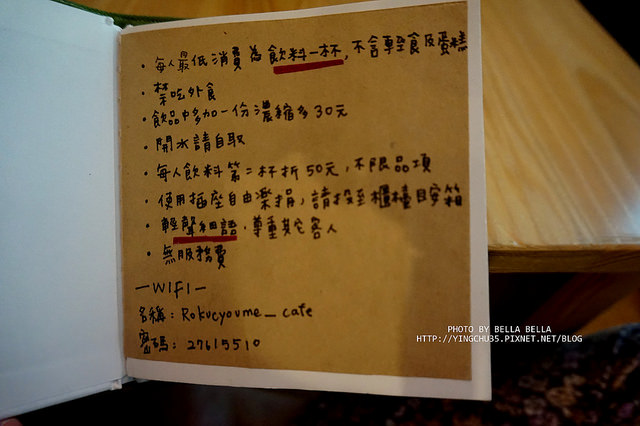 • 每人最低消費為飲料一杯, 不含輕食及蛋糕
• 禁吃外食
• 飲品中多加一份濃縮多30元
• 開水請自取
• 每人飲料第二杯折50元, 不限品項
• 使用插座自由樂捐, 請投至櫃檯貯箱
• 輕聲細語, 尊重其它客人
• 無服務費
—WIFI—
名稱: Rokucyoume_cafe
密碼: 27615510
PHOTO BY BELLA BELLA
HTTP://YINGCHU35.PIXNET.NET/BLOG